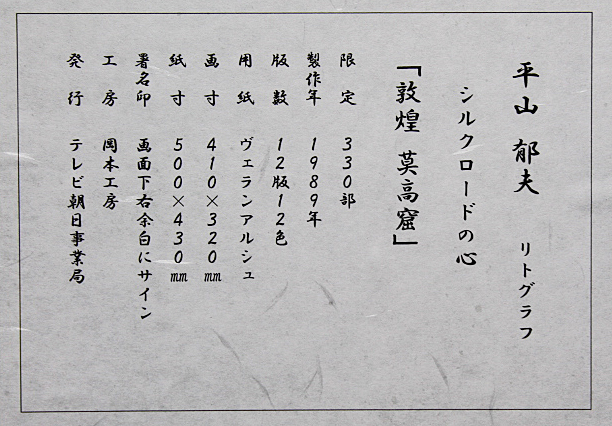 平山 郁夫 リトグラフ
シルクロードの心
「敦煌 莫高窟」
限定 330部
製作年 1989年
版数 12版12色
用紙 ヴェランアルシュ
画寸 410×320㎜
紙寸 500×430㎜
署名印 画面下右余白にサイン
工房 岡本工房
発行 テレビ朝日事業局